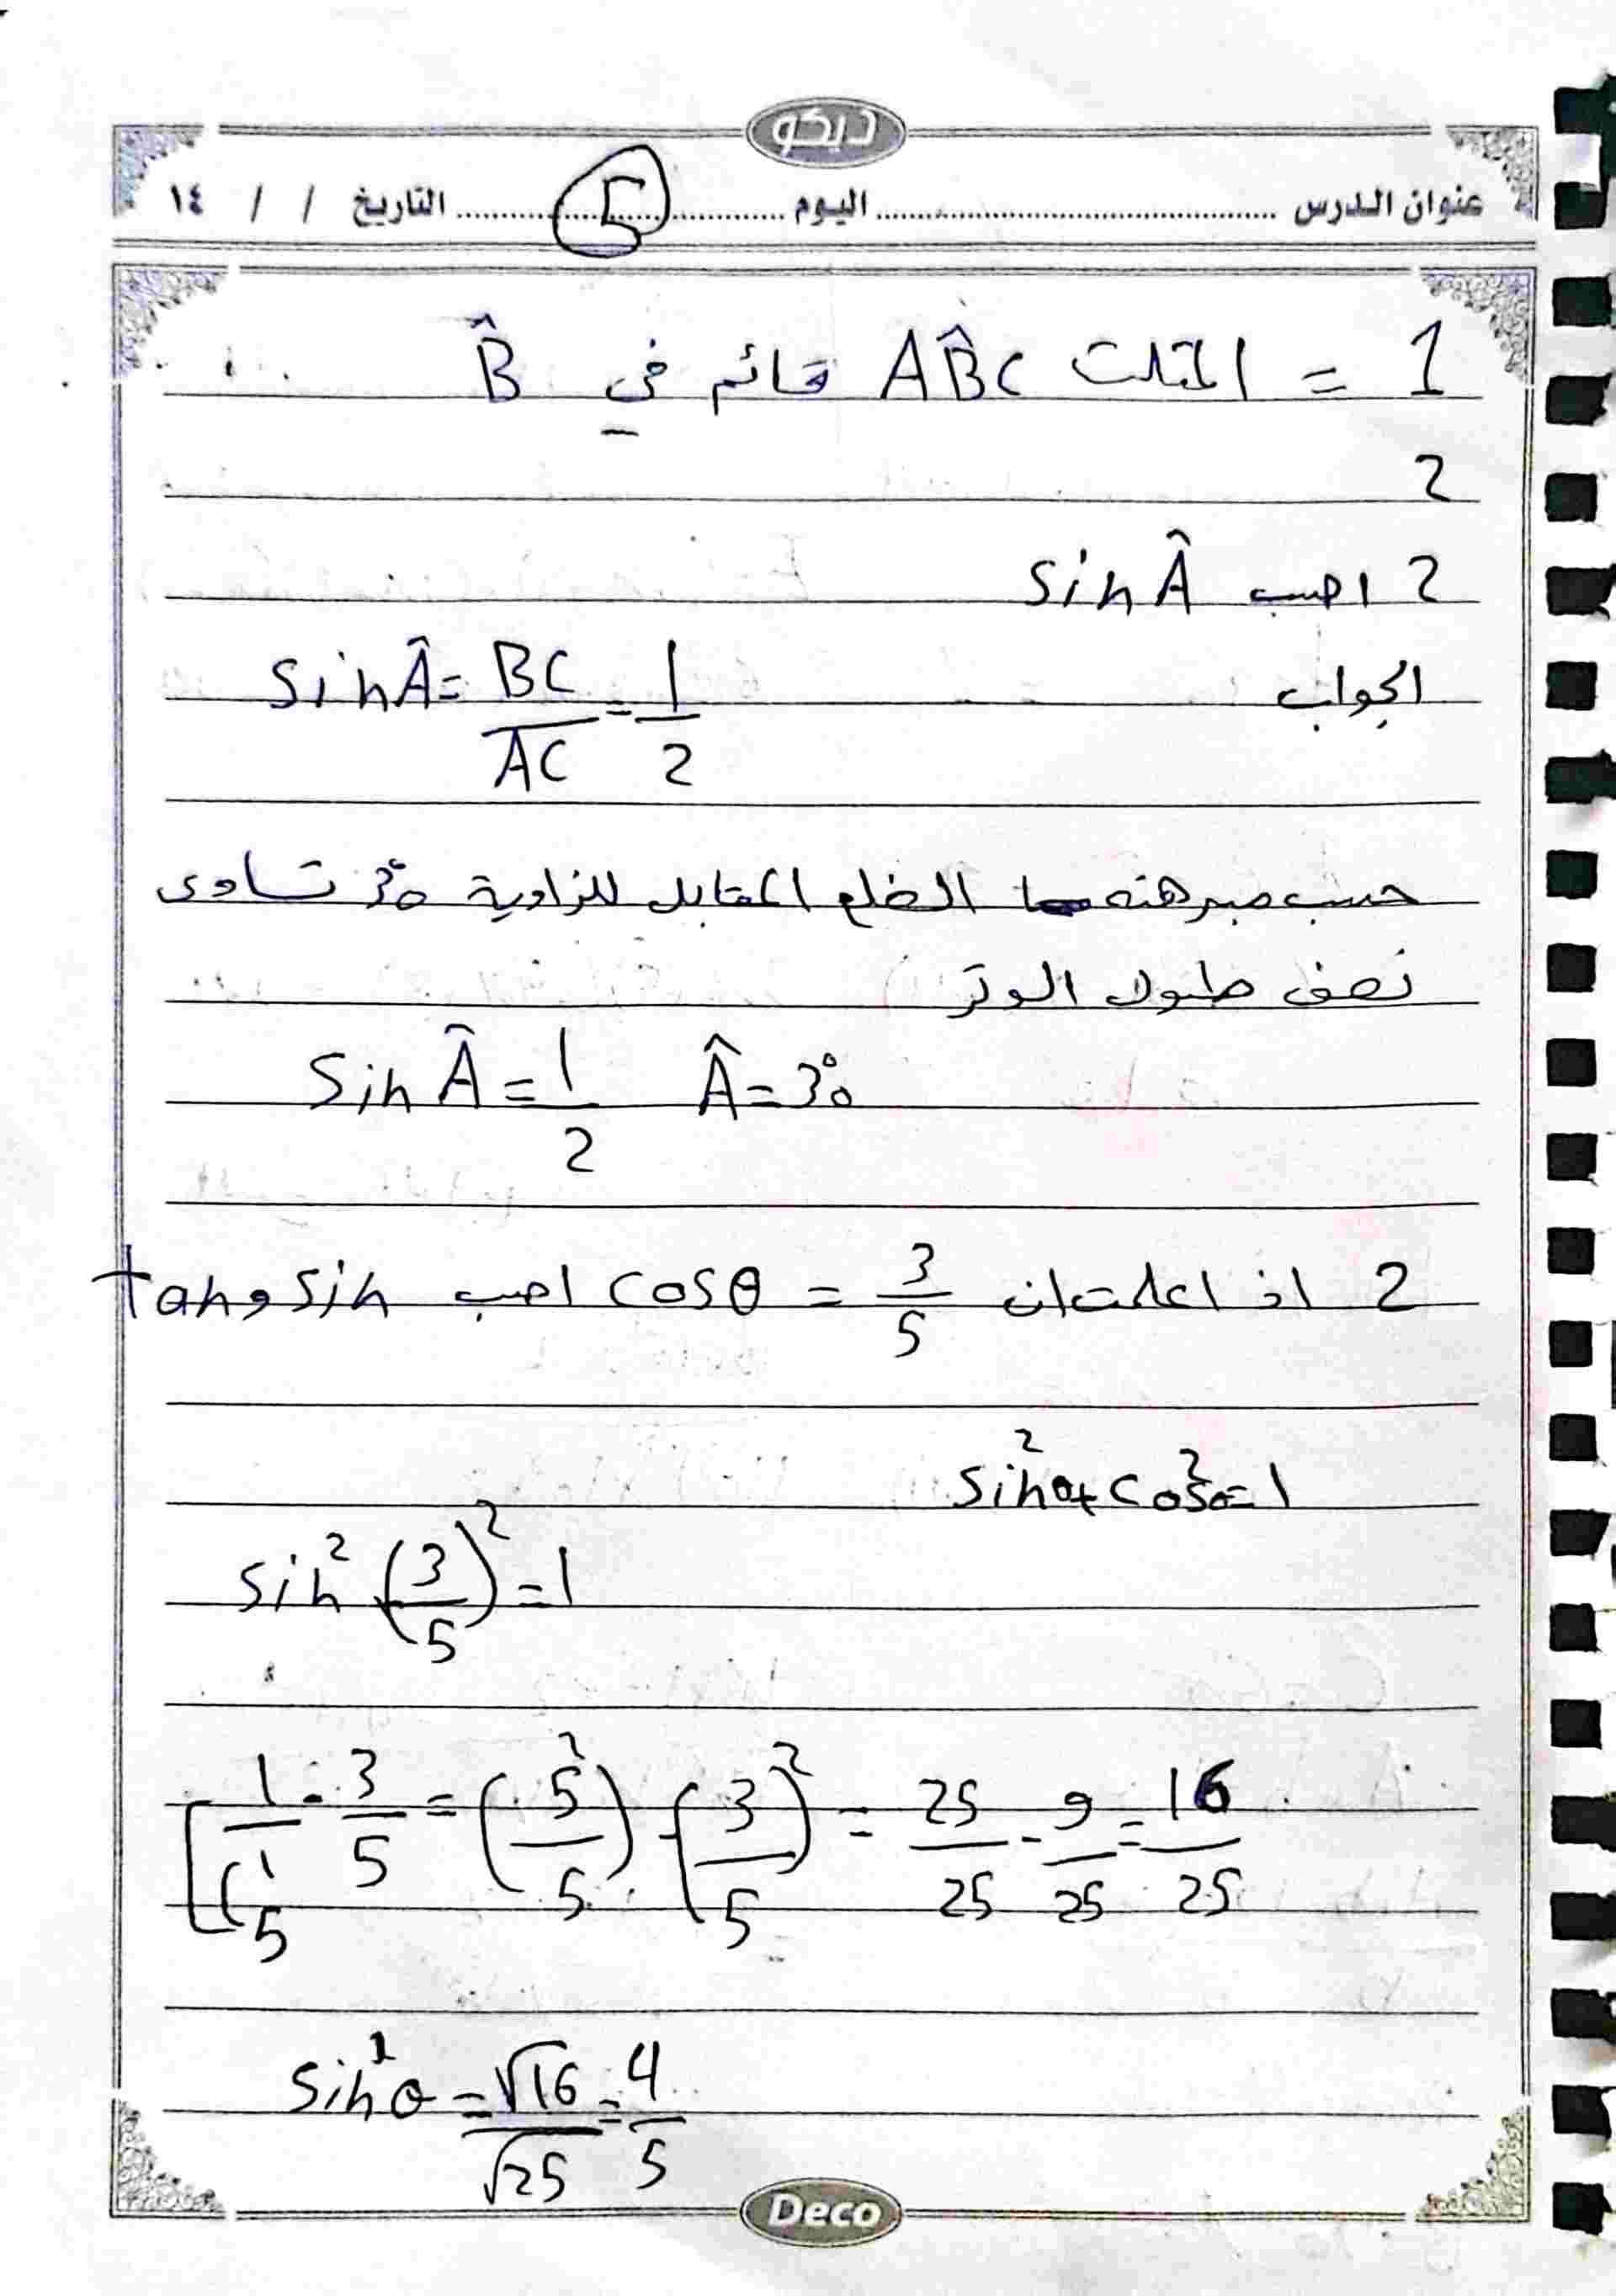 ديكو
عنوان الدرس ........ اليوم ........ 5 ........ التاريخ / / ١٤
1 = المثلث ABC قائم في B̂
2
2 احسب sin Â
الجواب sin Â = BC/AC = 1/2
حسب مبرهنه الضلع المقابل للزاوية 30° تساوى
نصف طول الوتر
sin Â = 1/2 Â = 30°
2 اذ اعلمت ان cosθ = 3/5 احسب sin و tan
sin²θ + cos²θ = 1
sin² (3/5)² = 1
1/1 - 3/5 = (5/5)² - (3/5)² = 25/25 - 9/25 = 16/25
(5
sin²θ = √16/√25 = 4/5
Deco